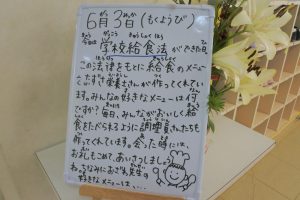 6月3日(もくようび)
今日は、学校給食法ができた日。
この法律をもとに給食のメニュー
を栄養士さんが作ってくれてい
ます。みんなの好きなメニューは何
ですか?毎日、みんながおいしく給
食をたべられるように調理員さんたちも
作ってくれています。会った時には、
お礼もこめて、あいさつしましょう
ね。ちなみにおざき先生の
好きなメニューは、…